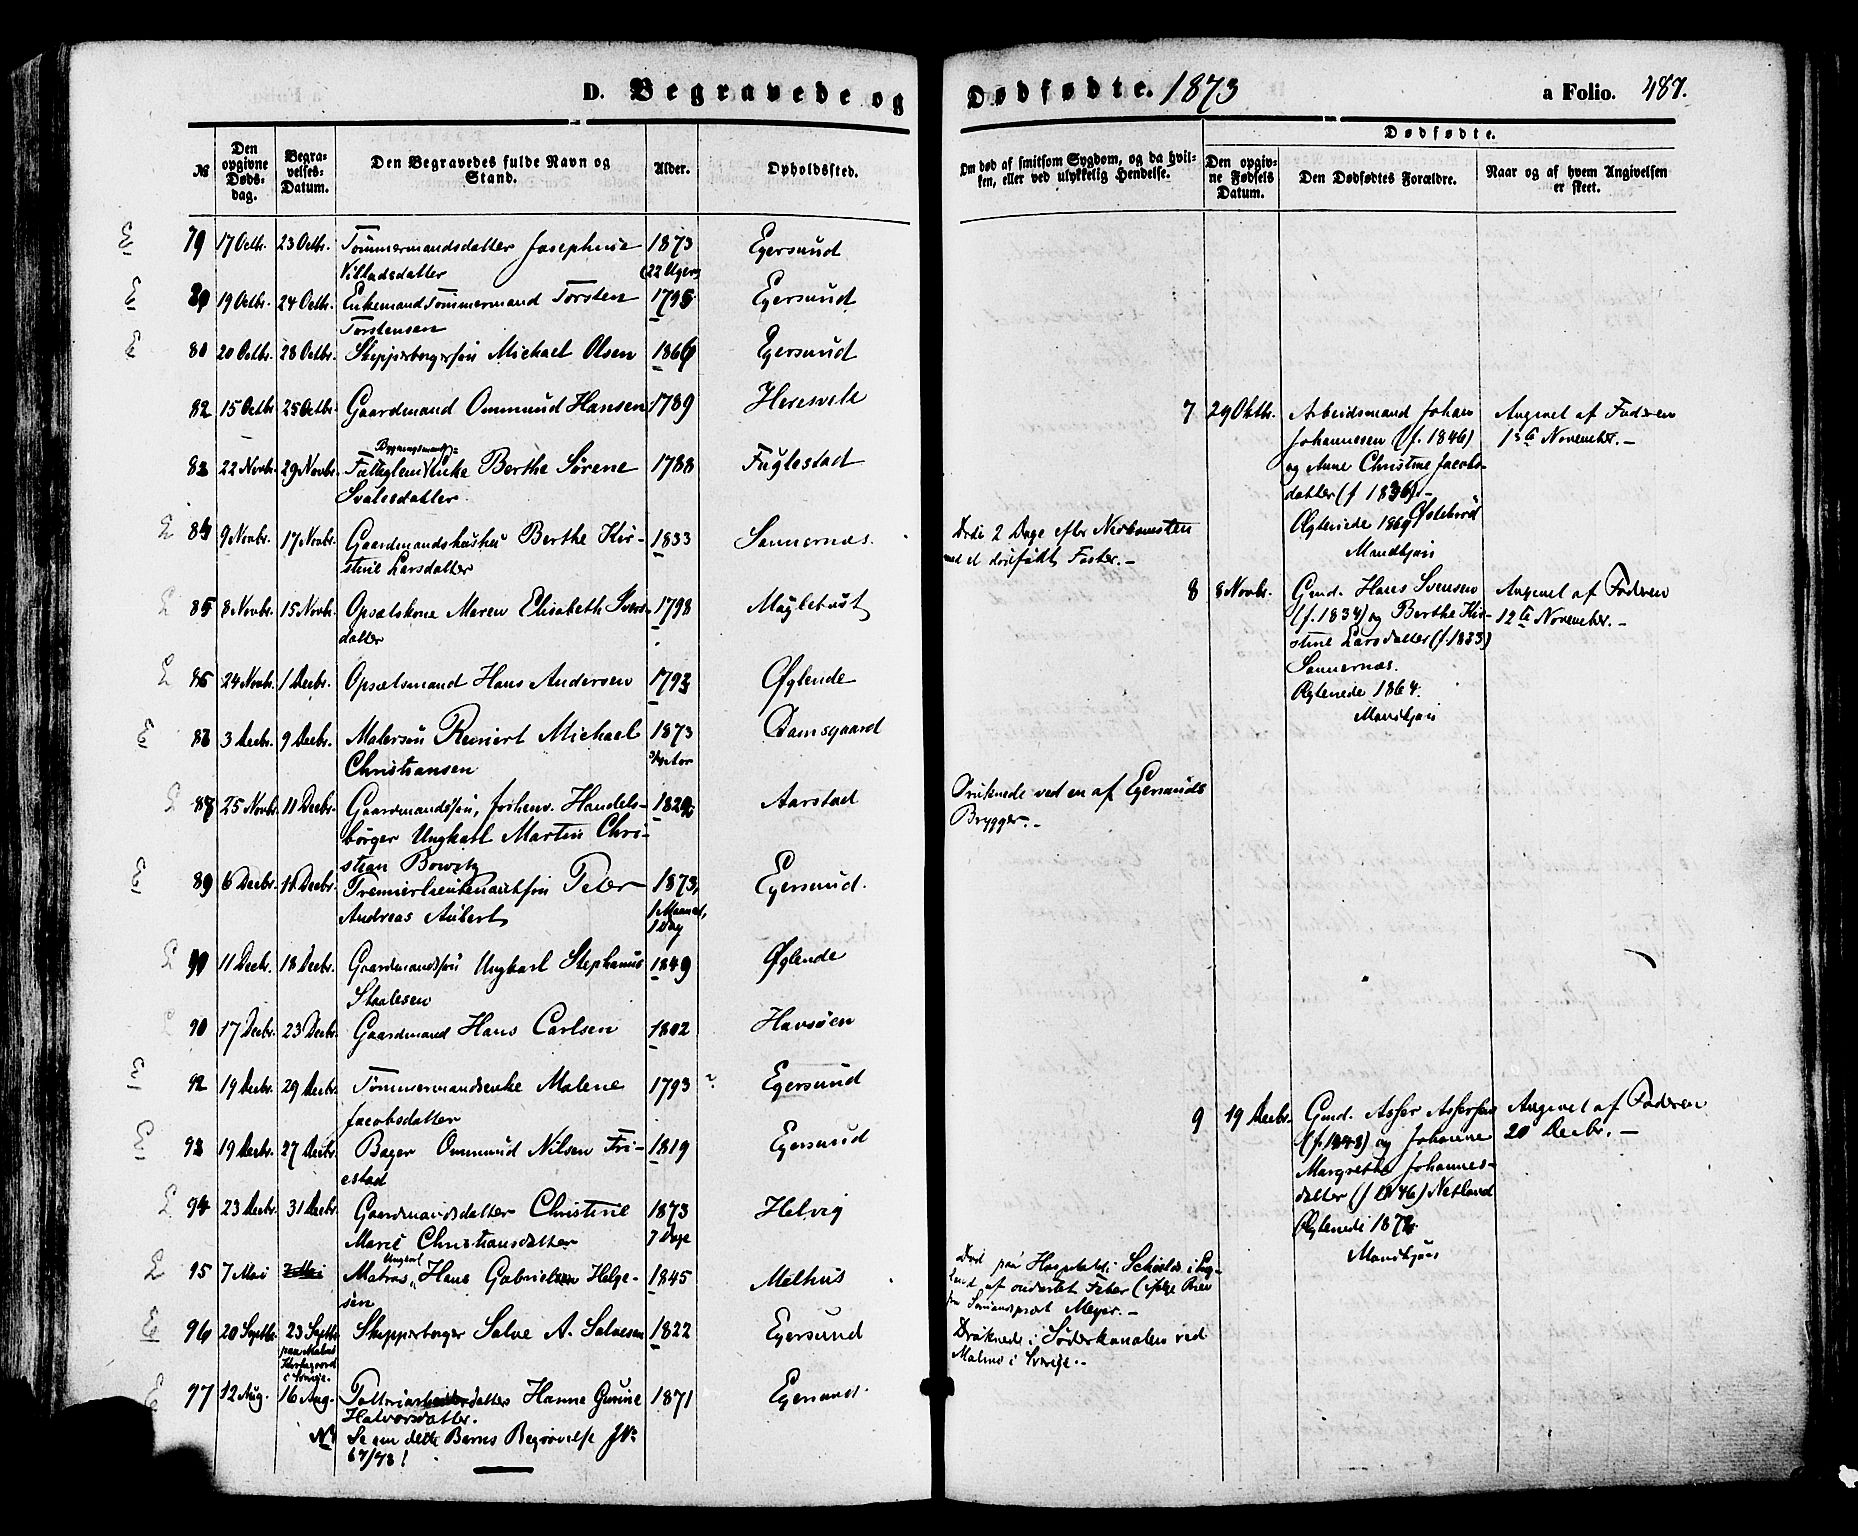 D. Begravede og Dødfødte. 1873 a Folio. 487.
№
Den opgivne Døds-dag.
Begra-velses-Datum.
Den Begravedes fulde Navn og Stand.
Alder.
Opholdssted.
Om død af smitsom Sygdom, og da hvil-ken, eller ved ulykkelig Hendelse.
Dødfødte.
Den opgiv-ne Fødsels Datum.
Den Dødfødtes Forældre.
Naar og af hvem Angivelsen er skeet.
79 17 Octb. 23 Octb. Tømmermandsdatter Josephine 1873 Egersund
Villadsdatter (22 Uger)
80 19 Octbr. 24 Octb. Enkemand Tømmermand Torsten 1795 Egersund
Torstensen
81 20 Octbr. 28 Octbr. Skipperborgersøn Michael Olsen 1866 Egersund
82 15 Octbr 25 Octbr. Gaardmand Ommund Hansen 1789 Heresvele
83 22 Novbr. 29 Novbr. Enke Berthe Sørene 1788 Fuglestad
Svalesdatter
84 9 Novbr. 17 Novbr. Gaardmandshustru Berthe Kir- 1833 Sannernæs.
stine Larsdatter
Døde 2 Dage efter Nedkomsten
med et dødfødt Foster.-
85 8 Novbr. 15 Novbr. Opsætskone Maren Elisabeth Svends- 1798 Møglebust
datter
86 24 Novbr. 1 Decbr. Opsætsmand Hans Andersen 1793 Øglende
3 Decbr. 9 Decbr. Malersøn Reinert Michael 1873 Damsgaard
Christiansen
25 Novbr. 11 Decbr. Gaardmandssøn, forhenv. Handels- Aarstad
borger Ungkarl Martin Chri-
stian Bowitz
Druknede ved en af Egersunds
Brygger.-
89 6 Decbr. Premierlieutenantsøn Peter 1873, Egersund.
Andreas Aubert 1 Maaned,
1 Dag
11 Decbr. 18 Decbr. Gaardmandssøn Ungkarl Stephanus 1849 Øglende
Staalesen
17 Decbr. 23 Decbr. Gaardmand Hans Carlsen 1802 Havsøen
92 19 Decbr. 29 Decbr. Tømmermandsenke Malene 1793 Egersund
Jacobsdatter
93 19 Decbr. 27 Decbr. Bager Ommund Nilsen Fri- 1819 Egersund
estad
94 23 Decbr. 31 Decbr. Gaardmandsdatter Christine 1873 Helvig
Marie Christiansdatter 7 Dage
95 7 Mai 7 Mai Matros Ungkarl Hans Gabrielsen Helge- 1845 Melhus
sen
Død paa Hospitalet i Schields i Eng-
land af ondartet Feber (ifølge Brev
fra Sømandsprest Meyer.-
96 20 Septbr. 23 Septbr. Skipperborger Salve A. Salvesen 1822 Egersund
paa Malmø
Kirkegaard
i Sverige.
Druknede i Söderkanalen ved
Malmø i Sverige.-
97 12 Aug. 16 Aug. Hanne Gurine 1871 Egersund.
Halvorsdatter.
Se om dette Barns Begravelse
67/73!
7 29 Oktbr. Arbeidsmand Johan
Johannesen (f. 1846)
og Anne Christine Jacobs-
datter (f 1836).-
Ægteviede 1869 Østebrød
Mandkjøn
Angivet af Faderen
1ste November.-
8 8 Novbr. Gmd. Hans Svensen
(f. 1834) og Berthe Kir-
stine Larsdatter (f. 1833)
Sannernæs.
Ægteviede 1864.
Mandkjøn
Angivet af Faderen
12te November.-
9 19 Decbr. Gmd. Asser Assersen
(f. 1848) og Johanne
Margrethe Johannes-
datter (f 1846) Netland
Ægteviede 1872.
Mandkjøn
Angivet af Faderen
20 Decbr.-